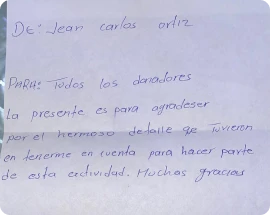 DE: Jean carlos ortiz
PARA: Todos los donadores
la presente es para agradeser
por el hermoso detalle qe Tuvieron
en tenerme en cuenta para hacer parte
de esta actividad. Muchas gracias